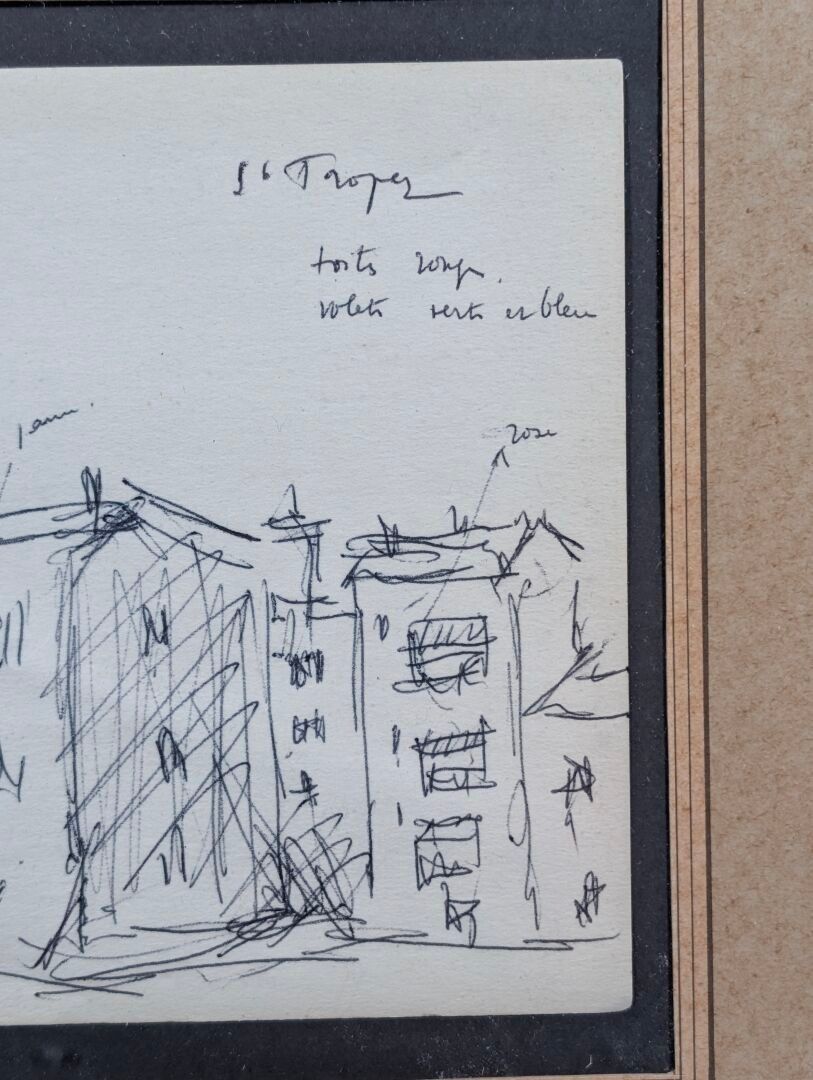 St Tropez
toits rouges
volets verts et bleu
jaune
rose